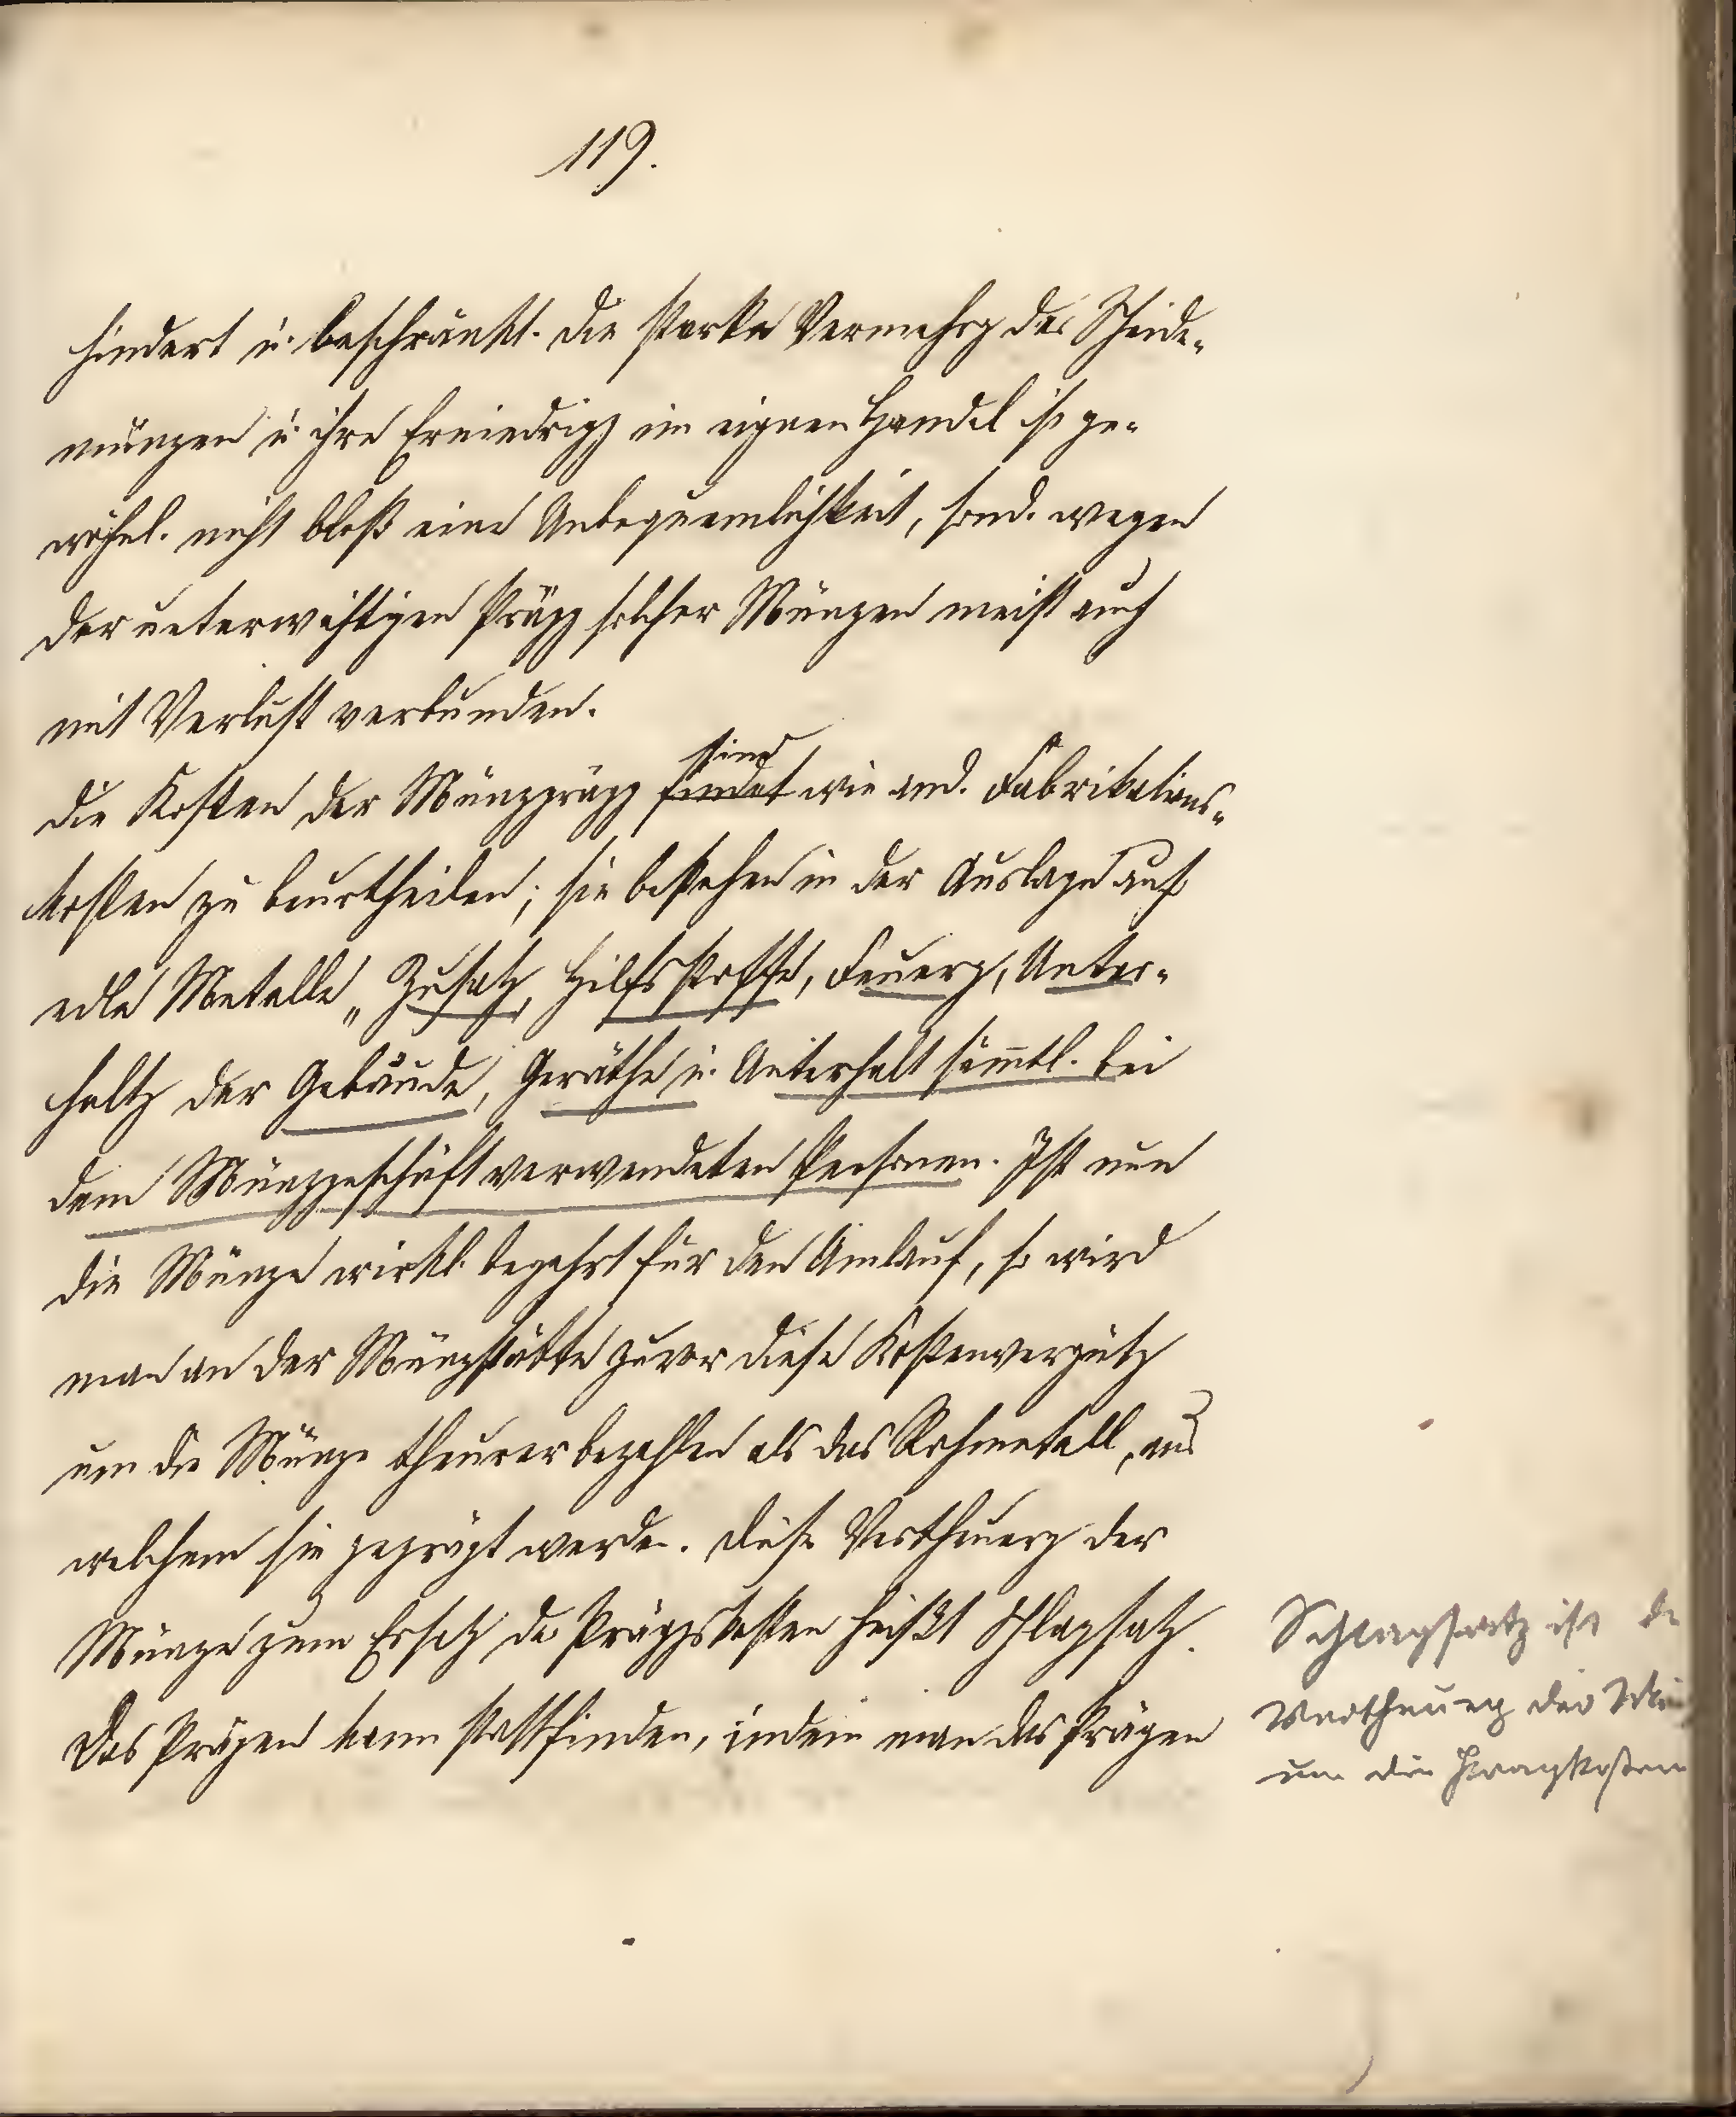 119.
hindert u. beschränkt. Die starke Vermehrg der Scheide-
münzen u. ihre Erniedrigg im eignen Handel ist ge-
wöhnl. nicht bloß eine Unbequemlichkeit, sond. wegen
der unterwichtigen Prägg solcher Münzen meist auch
mit Verlust verbunden.
sind
Die Kosten der Münzprägg findet wie and. Fabrikations-
kosten zu beurtheilen; sie bestehen in der Auslage auf
edle Metalle, Zusatz, Hilfsstoffe, Feuerg, Unter-
haltg der Gebäude, Geräthe u. Unterhalt sämmtl. bei
dem Münzgeschäft verwendeten Personen. Ist nun
die Münze wirkl. begehrt für den Umlauf, so wird
man an der Münzstätte zuvor diese Kostenvergütg
um die Münze theurer bezahlen als das Rohmetall, aus
welchem sie geprägt werden. Diese Vertheuerg der
Münze zum Ersatz der Präggskosten heißt Schlagsatz.
Das Prägen kann stattfinden, indem man das Prägen
Schlagsatz ist de
Vertheuerg der Mün
um die Pragkosten